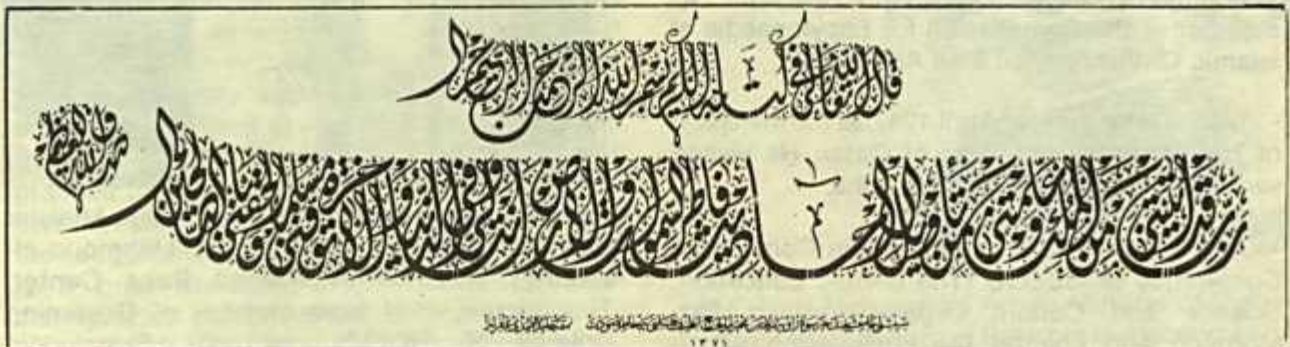 قال الله تعالى في كتابه الكريم بسم الله الرحمن الرحيم
رب قد آتيتني من الملك وعلمتني من تأويل الأحاديث فاطر السموات والأرض أنت وليي في الدنيا والآخرة توفني مسلما وألحقني بالصالحين
صدق الله العظيم